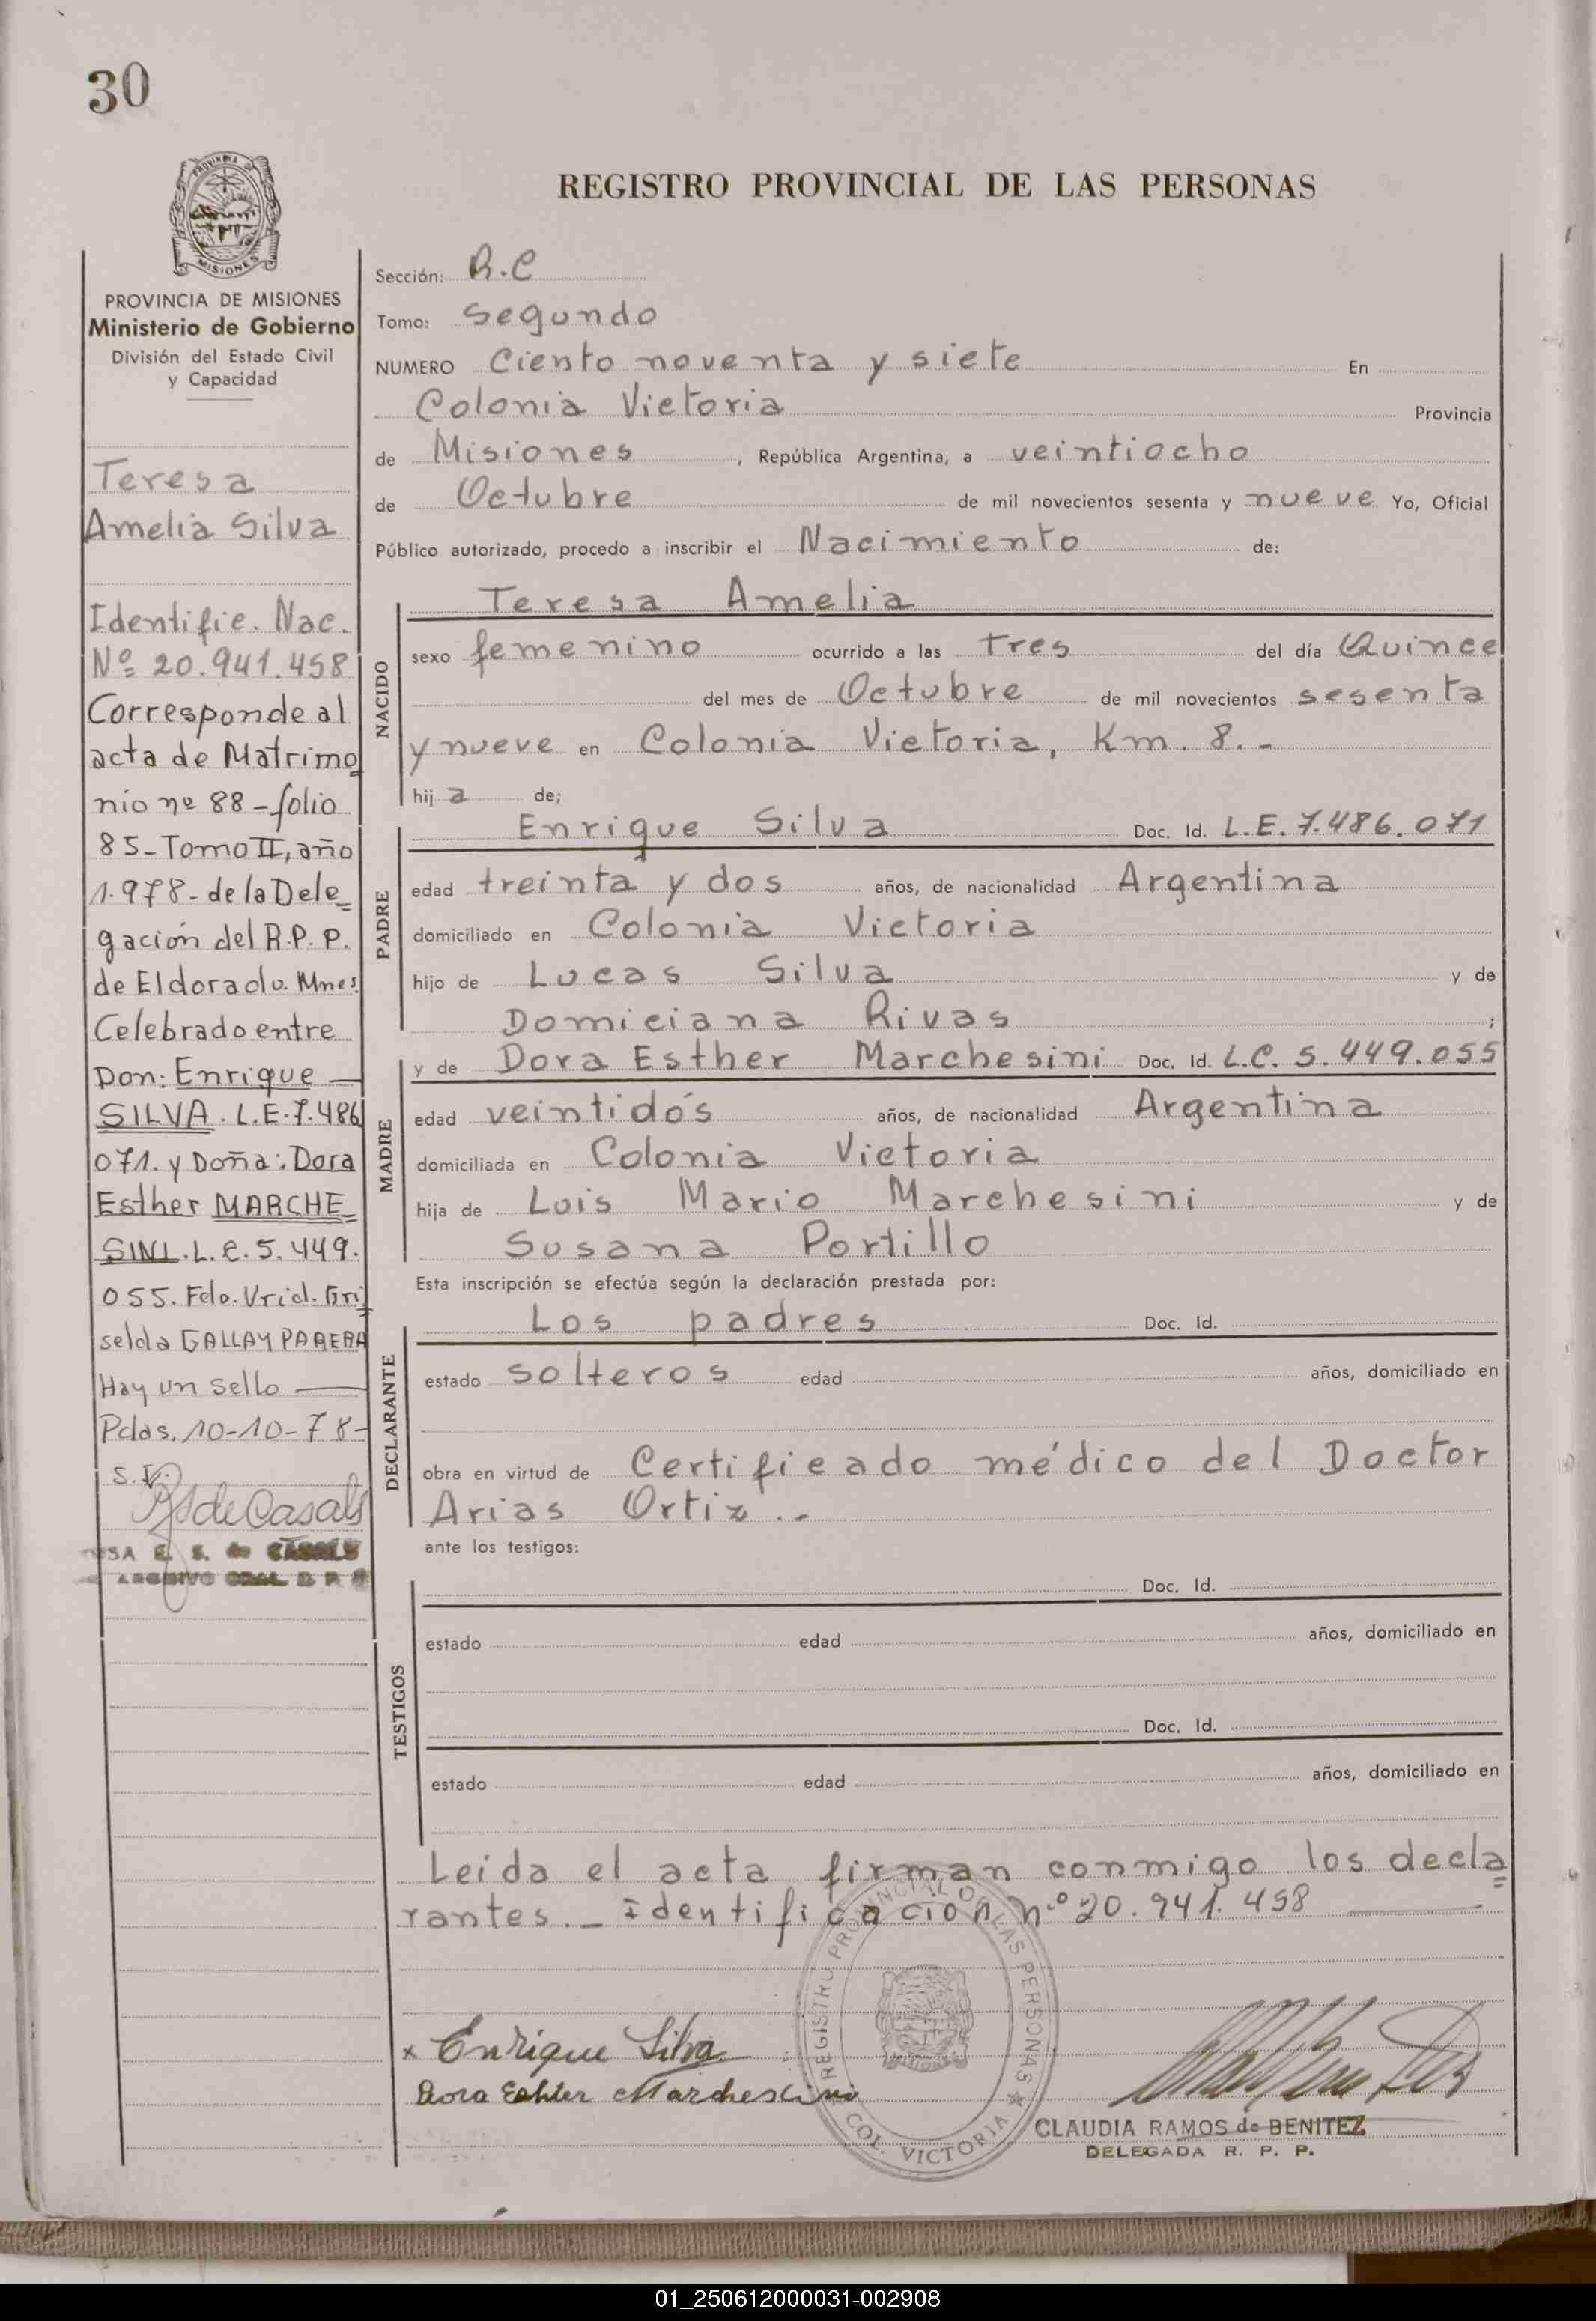 30
PROVINCIA DE
MISIONES
REGISTRO PROVINCIAL DE LAS PERSONAS
PROVINCIA DE MISIONES
Ministerio de Gobierno
División del Estado Civil
y Capacidad
Teresa
Amelia Silva
Identific. Nac.
Nº 20.941.458
Corresponde al
acta de Matrimo
nio nº 88-folio
85-Tomo II, año
1.978- de la Dele
gación del R.P.P.
de Eldorado. Mnes.
Celebrado entre
Don: Enrique
SILVA. L.E.7.486
071. y Doña: Dora
Esther MARCHE
SINI. L.C.5.449.
055. Fdo. Vrid. Gri
selda GALLAY PARERA
Hay un sello
Pdas. 10-10-78-
de Casals
E. S. de CASALS
ARCHIVO GRAL. R. P. P.
Sección: R.C
Tomo: Segundo
NUMERO Ciento noventa y siete En
Colonia Victoria Provincia
de Misiones, República Argentina, a veintiocho
de Octubre de mil novecientos sesenta y nueve Yo, Oficial
Público autorizado, procedo a inscribir el Nacimiento de:
NACIDO
Teresa Amelia
sexo femenino ocurrido a las tres del día Quince
del mes de Octubre de mil novecientos sesenta
y nueve en Colonia Victoria, Km. 8.-
hija de;
PADRE
Enrique Silva Doc. Id. L.E. 7.486.071
edad treinta y dos años, de nacionalidad Argentina
domiciliado en Colonia Victoria
hijo de Lucas Silva y de
Domiciana Rivas ;
MADRE
y de Dora Esther Marchesini Doc. Id. L.C. 5.449.055
edad veintidós años, de nacionalidad Argentina
domiciliada en Colonia Victoria
hija de Luis Mario Marchesini y de
Susana Portillo
Esta inscripción se efectúa según la declaración prestada por:
DECLARANTE
Los padres Doc. Id.
estado solteros edad años, domiciliado en
obra en virtud de Certificado médico del Doctor
Arias Ortiz.-
ante los testigos:
TESTIGOS
Doc. Id.
estado edad años, domiciliado en
Doc. Id.
estado edad años, domiciliado en
Leida el acta firman conmigo los decla
rantes.- identificación n.º 20.941.458
x Enrique Silva
Dora Eshter Marchesini
REGISTRO PROVINCIAL DE LAS PERSONAS
COL. VICTORIA
CLAUDIA RAMOS de BENITEZ
DELEGADA R. P. P.
01_250612000031-002908